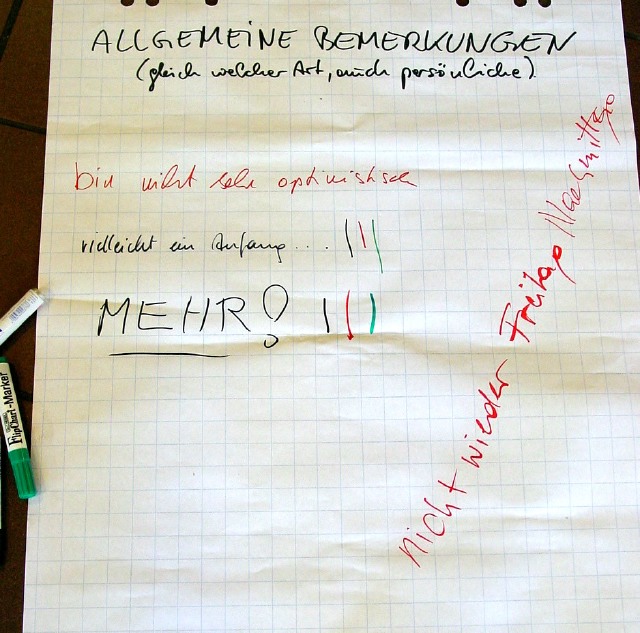 ALLGEMEINE BEMERKUNGEN
(gleich welcher Art, auch persönliche)
bin nicht sehr optimistisch
vielleicht ein Anfang... |||
MEHR! |||
nicht wieder Freitag Nachmittag
FlipChart-Marker